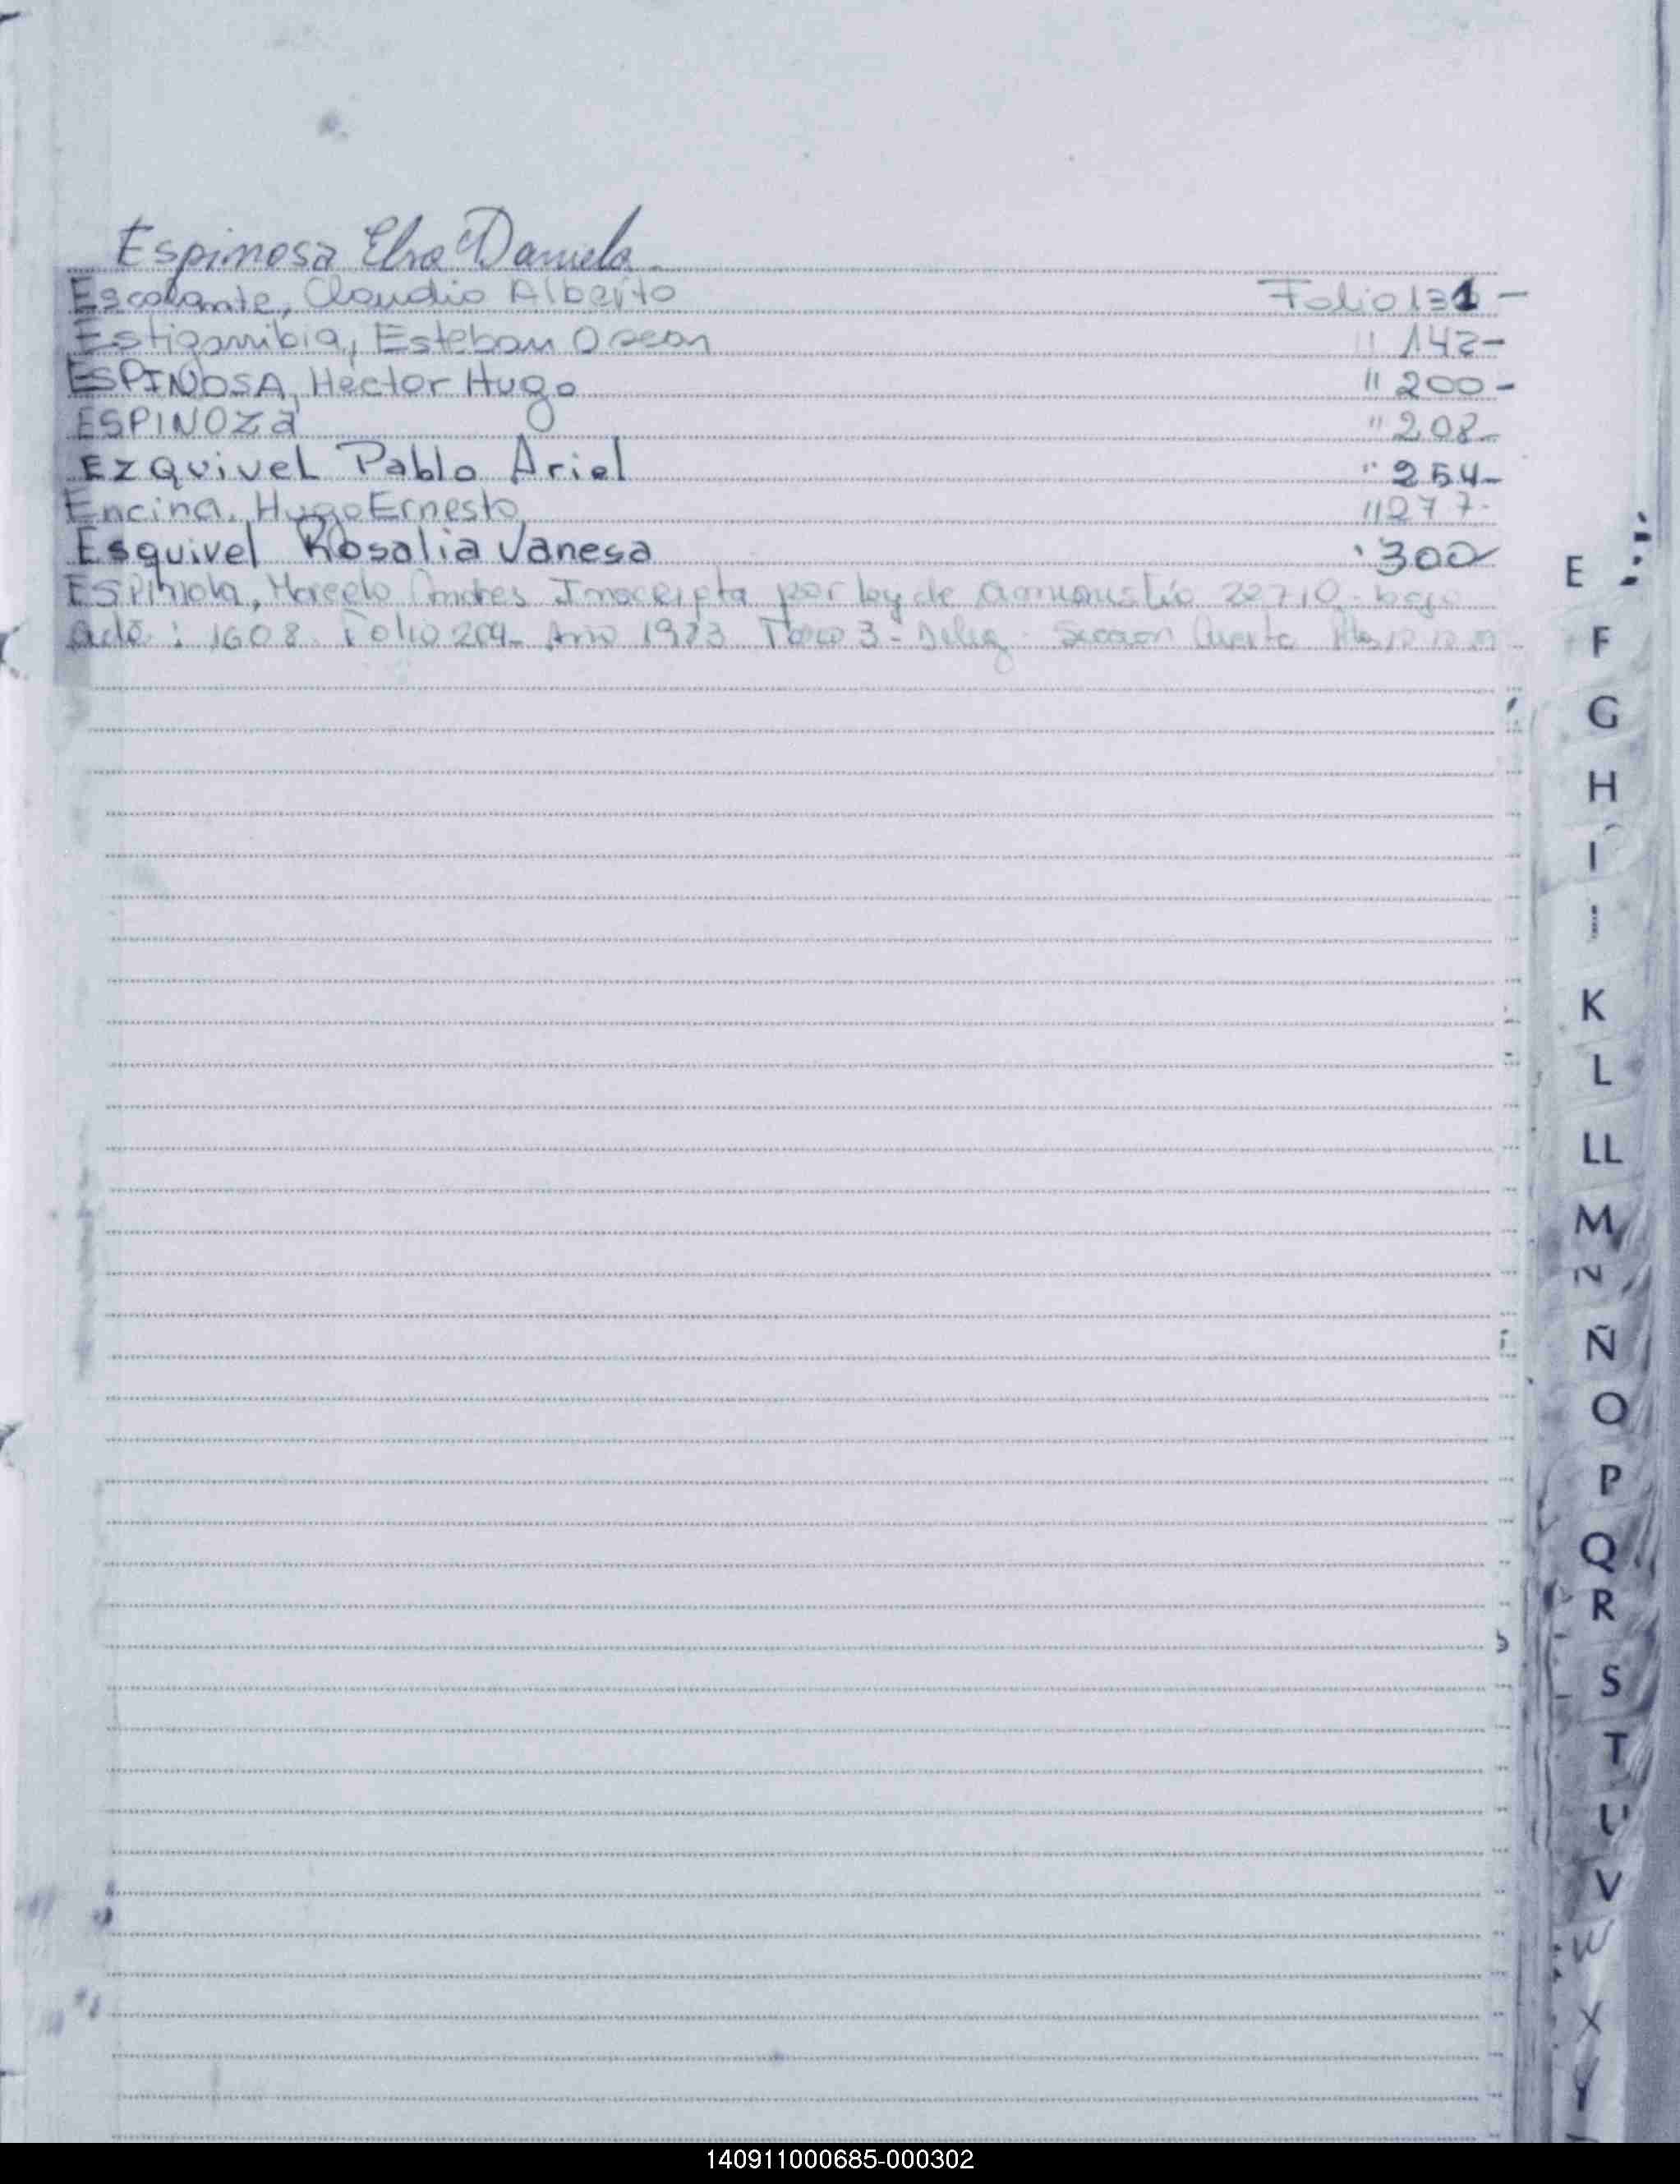 Espinosa Elsa Daniela
Escalante, Claudio Alberto Folio 131 -
Estigarribia, Esteban Oscar " 142-
ESPINOSA, Héctor Hugo " 200-
ESPINOZA " 208-
EZQUIVEL Pablo Ariel " 254-
Encina, Hugo Ernesto " 277-
Esquivel Rosalia Vanesa " 300
ESPINOLA, Marcelo Andres Inscripta por ley de 22710 - bajo
Acta : 1608 Folio 204- Año 1983 Tomo 3 - Seccion Cuarta
E
F
G
H
I
K
L
LL
M
N
Ñ
O
P
Q
R
S
T
U
V
W
X
Y
140911000685-000302